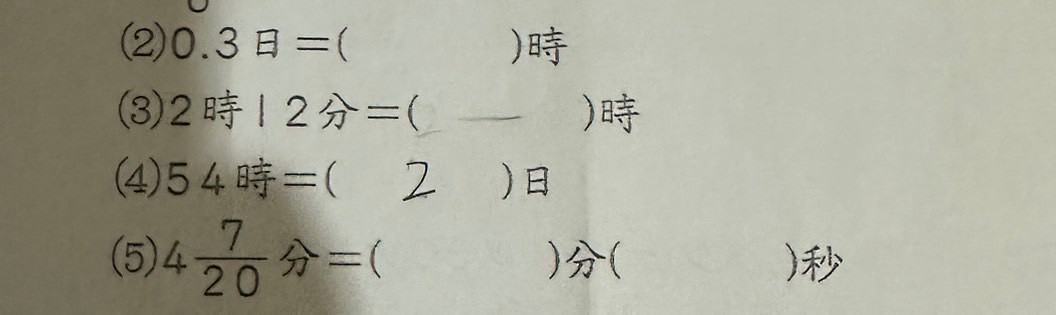 (2)0.3日=(　　)時
(3)2時12分=(　　)時
(4)54時=(　2　)日
(5)4 7/20 分=(　　)分(　　)秒